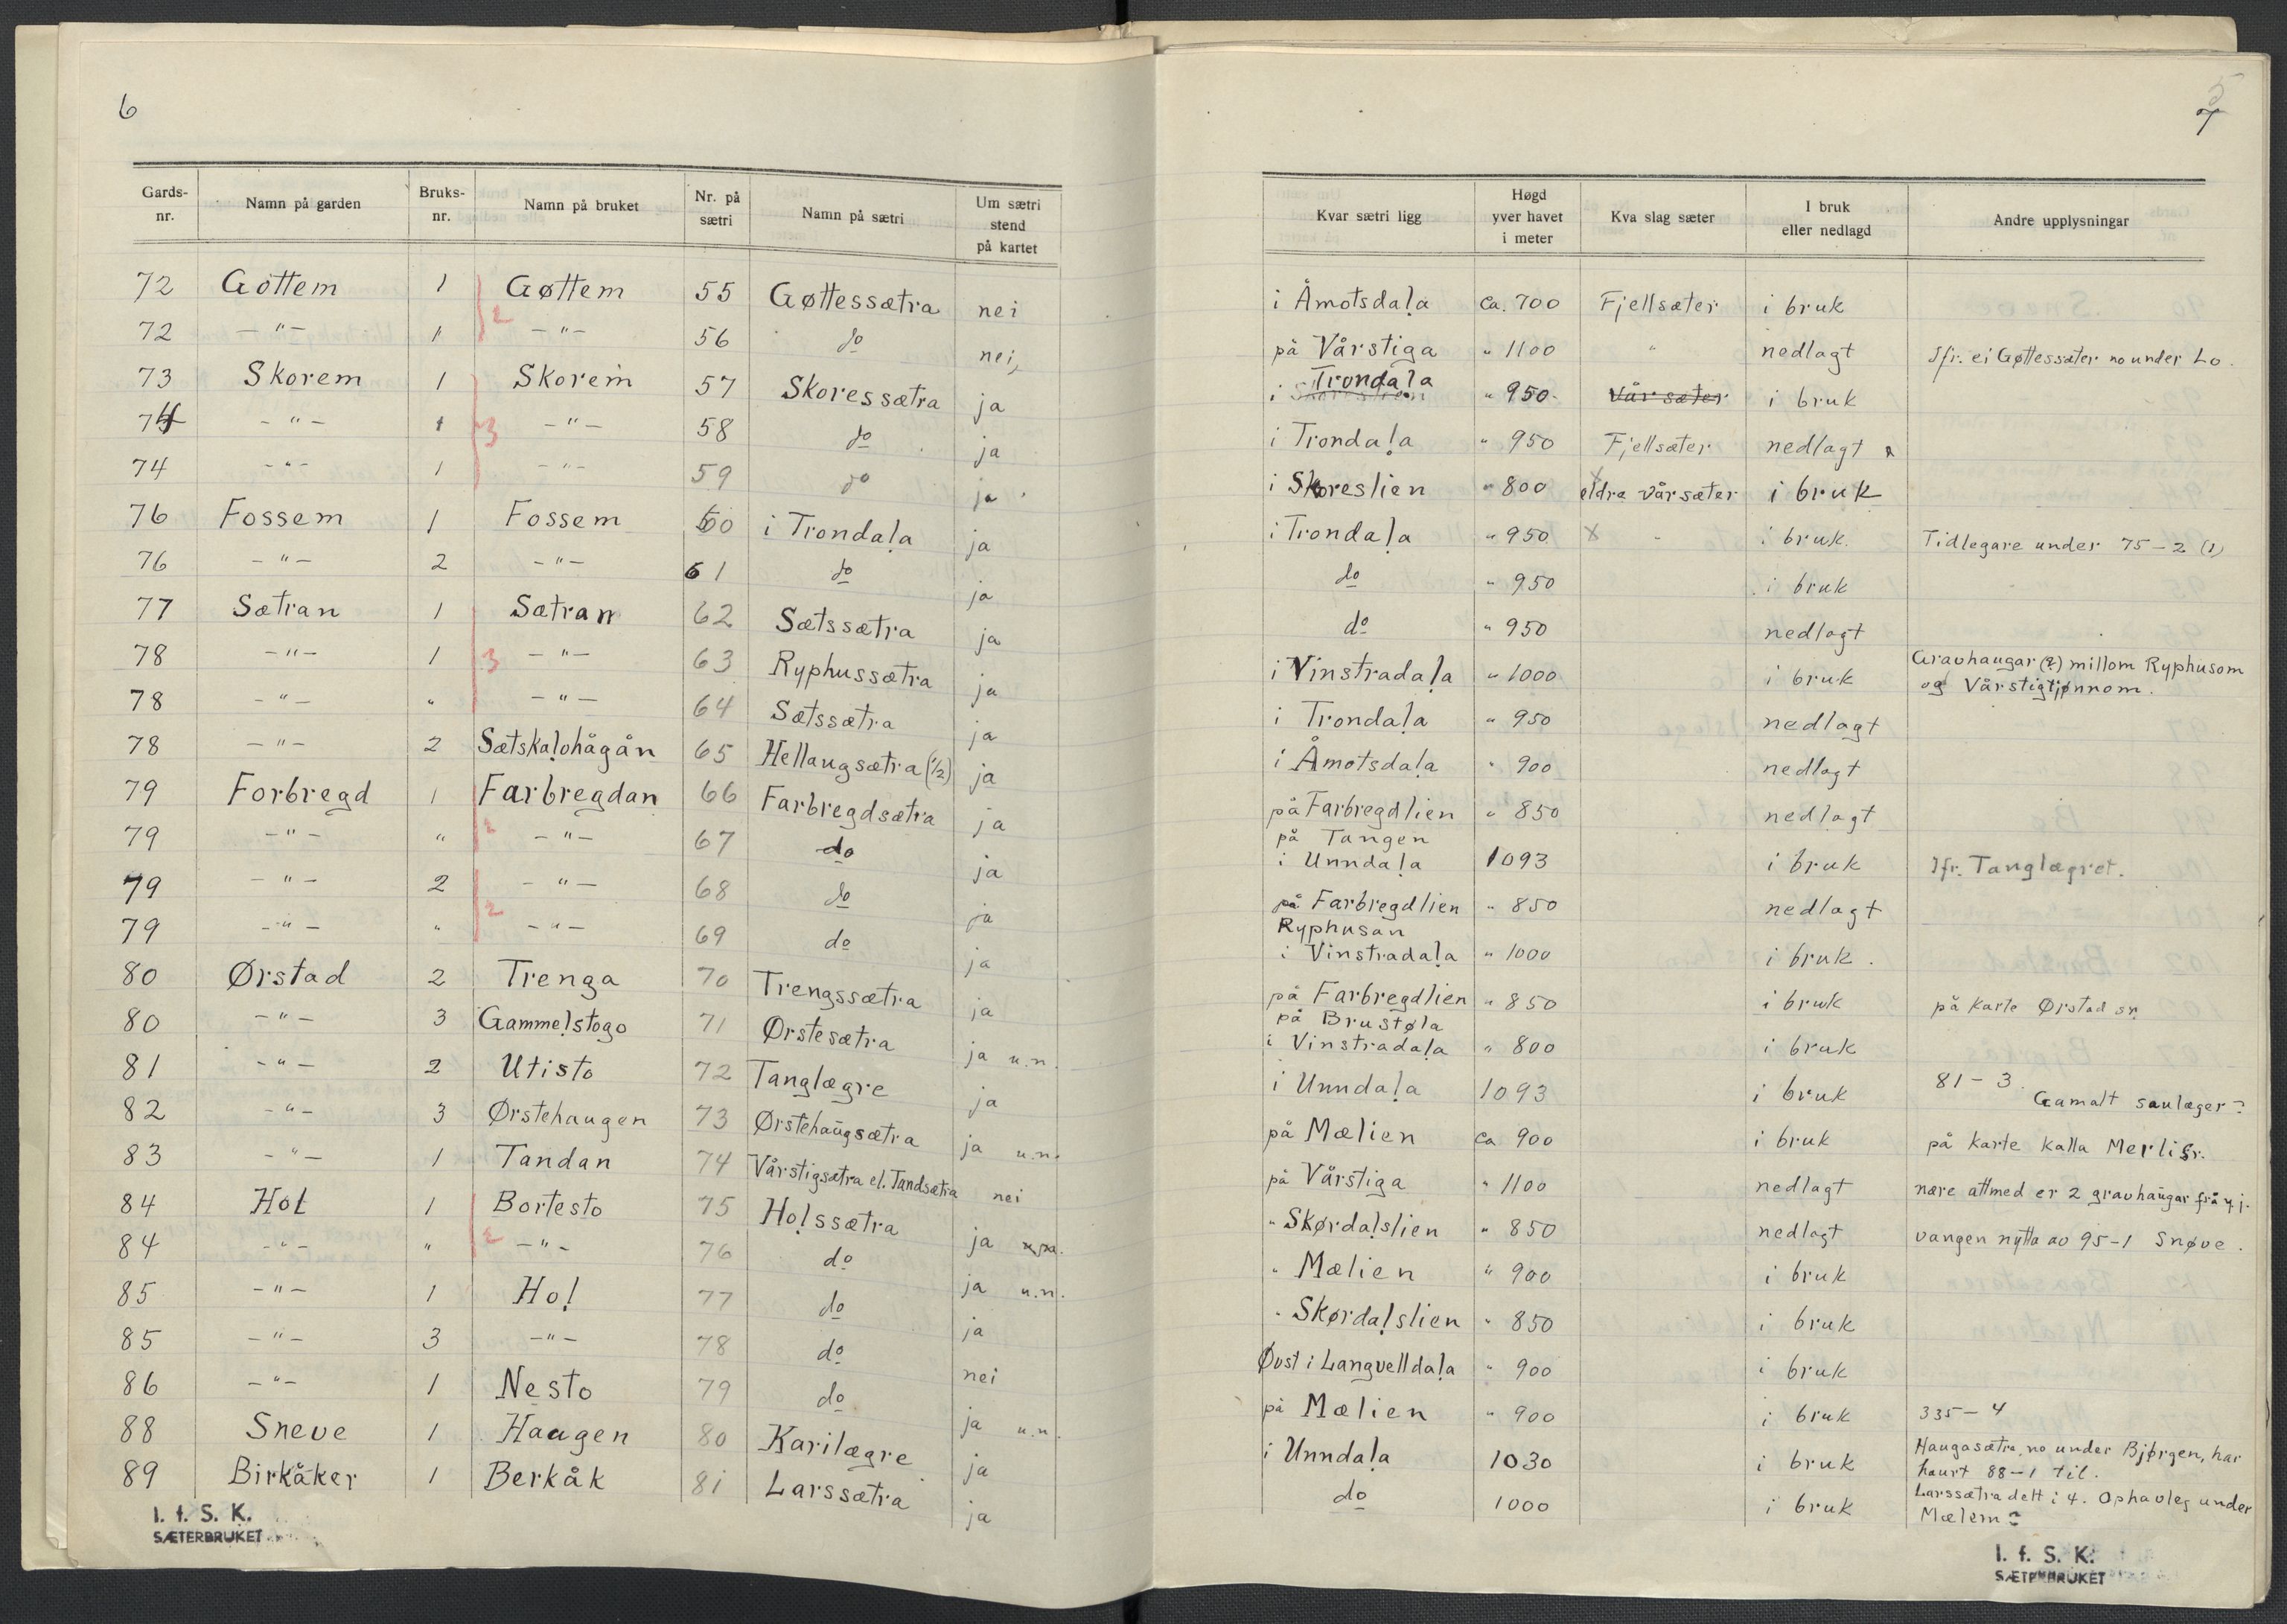 6
Gards-nr. | Namn på garden | Bruks-nr. | Namn på bruket | Nr. på sætri | Namn på sætri | Um sætri stend på kartet
72 Gøttem 1 Gøttem 55 Gøttessætra nei
72 –"– 1 2 –"– 56 do nei
73 Skorem 1 Skorem 57 Skoressætra ja
74 –"– 1 3 –"– 58 do ja
74 –"– 1 –"– 59 do ja
76 Fossem 1 Fossem 60 i Trondaḷa ja
76 –"– 2 –"– 61 do ja
77 Sætran 1 Sætran 62 Sætssætra ja
78 –"– 1 3 –"– 63 Ryphussætra ja
78 –"– " –"– 64 Sætssætra ja
78 –"– 2 Sætskaḷohågån 65 Hellaugsætra (1/2) ja
79 Forbregd 1 Farbregdan 66 Farbregdsætra ja
79 –"– " 2 –"– 67 do ja
79 –"– 2 –"– 68 do ja
79 –"– " 2 –"– 69 do ja
80 Ørstad 2 Trenga 70 Trengssætra ja
80 –"– 3 Gammeḷstogo 71 Ørstesætra ja u.n.
81 –"– 2 Utisto 72 Tanglægre ja
82 –"– 3 Ørstehaugen 73 Ørstehaugsætra ja u.n.
83 –"– 1 Tandan 74 Vårstigsætra el. Tandsætra nei
84 Hol 1 Bortesto 75 Hoḷssætra ja
84 –"– " 2 –"– 76 do ja u.n.
85 –"– 1 Hoḷ 77 do ja
85 –"– 3 –"– 78 do nei
86 –"– 1 Nesto 79 do ja u.n.
88 Sneve 1 Haugen 80 Karilægre ja
89 Birkåker 1 Berkåk 81 Larssætra ja
I. f. S. K.
SÆTERBRUKET
5
7
Kvar sætri ligg | Høgd yver havet i meter | Kva slag sæter | I bruk eller nedlagd | Andre upplysningar
i Åmotsdaḷa ca. 700 Fjellsæter i bruk
på Vårstiga " 1100 " nedlagt Jfr. ei Gøttessæter no under Lo.
i Trondaḷa " 950 Vårsæter i bruk
i Trondaḷa " 950 Fjellsæter nedlagt
i Skoreslien " 800 eldre vårsæter i bruk
i Trondaḷa " 950 x " i bruk. Tidlegare under 75–2 (1)
do " 950 i bruk
do " 950 nedlagt
i Vinstradaḷa " 1000 i bruk Gravhaugar (?) millom Ryphusom
og Vårstigtjønnom.
i Trondaḷa " 950 nedlagt
i Åmotsdaḷa " 900 nedlagt
på Farbregdlien " 850 nedlagt
på Tangen
i Unndaḷa 1093 i bruk Jfr. Tanglægret.
på Farbregdlien " 850 nedlagt
Ryphusan
i Vinstradaḷa " 1000 i bruk.
på Farbregdlien " 850 i bruk på karte Ørstad sr.
på Brustøla
i Vinstradaḷa " 800 i bruk
i Unndaḷa 1093 i bruk 81–3.
Gamalt saulæger?
på Mælien ca 900 i bruk på karte kalla Merlisr.
på Vårstiga " 1100 nedlagt nære attmed er 2 gravhaugar frå y.j.
" Skørdaḷslien " 850 nedlagt vangen nytta av 95–1 Snøve.
" Mælien " 900 i bruk
" Skørdaḷslien " 850 i bruk
Øvst i Langvelldaḷa " 900 i bruk
på Mælien " 900 i bruk 335–4
i Unndaḷa 1030 i bruk Haugasætra, no under Bjørgen, har
høurt 88–1 til.
do 1000 i bruk Larssætra delt i 4. Ophavleg under
Mælem?
I. f. S. K.
SÆTERBRUKET